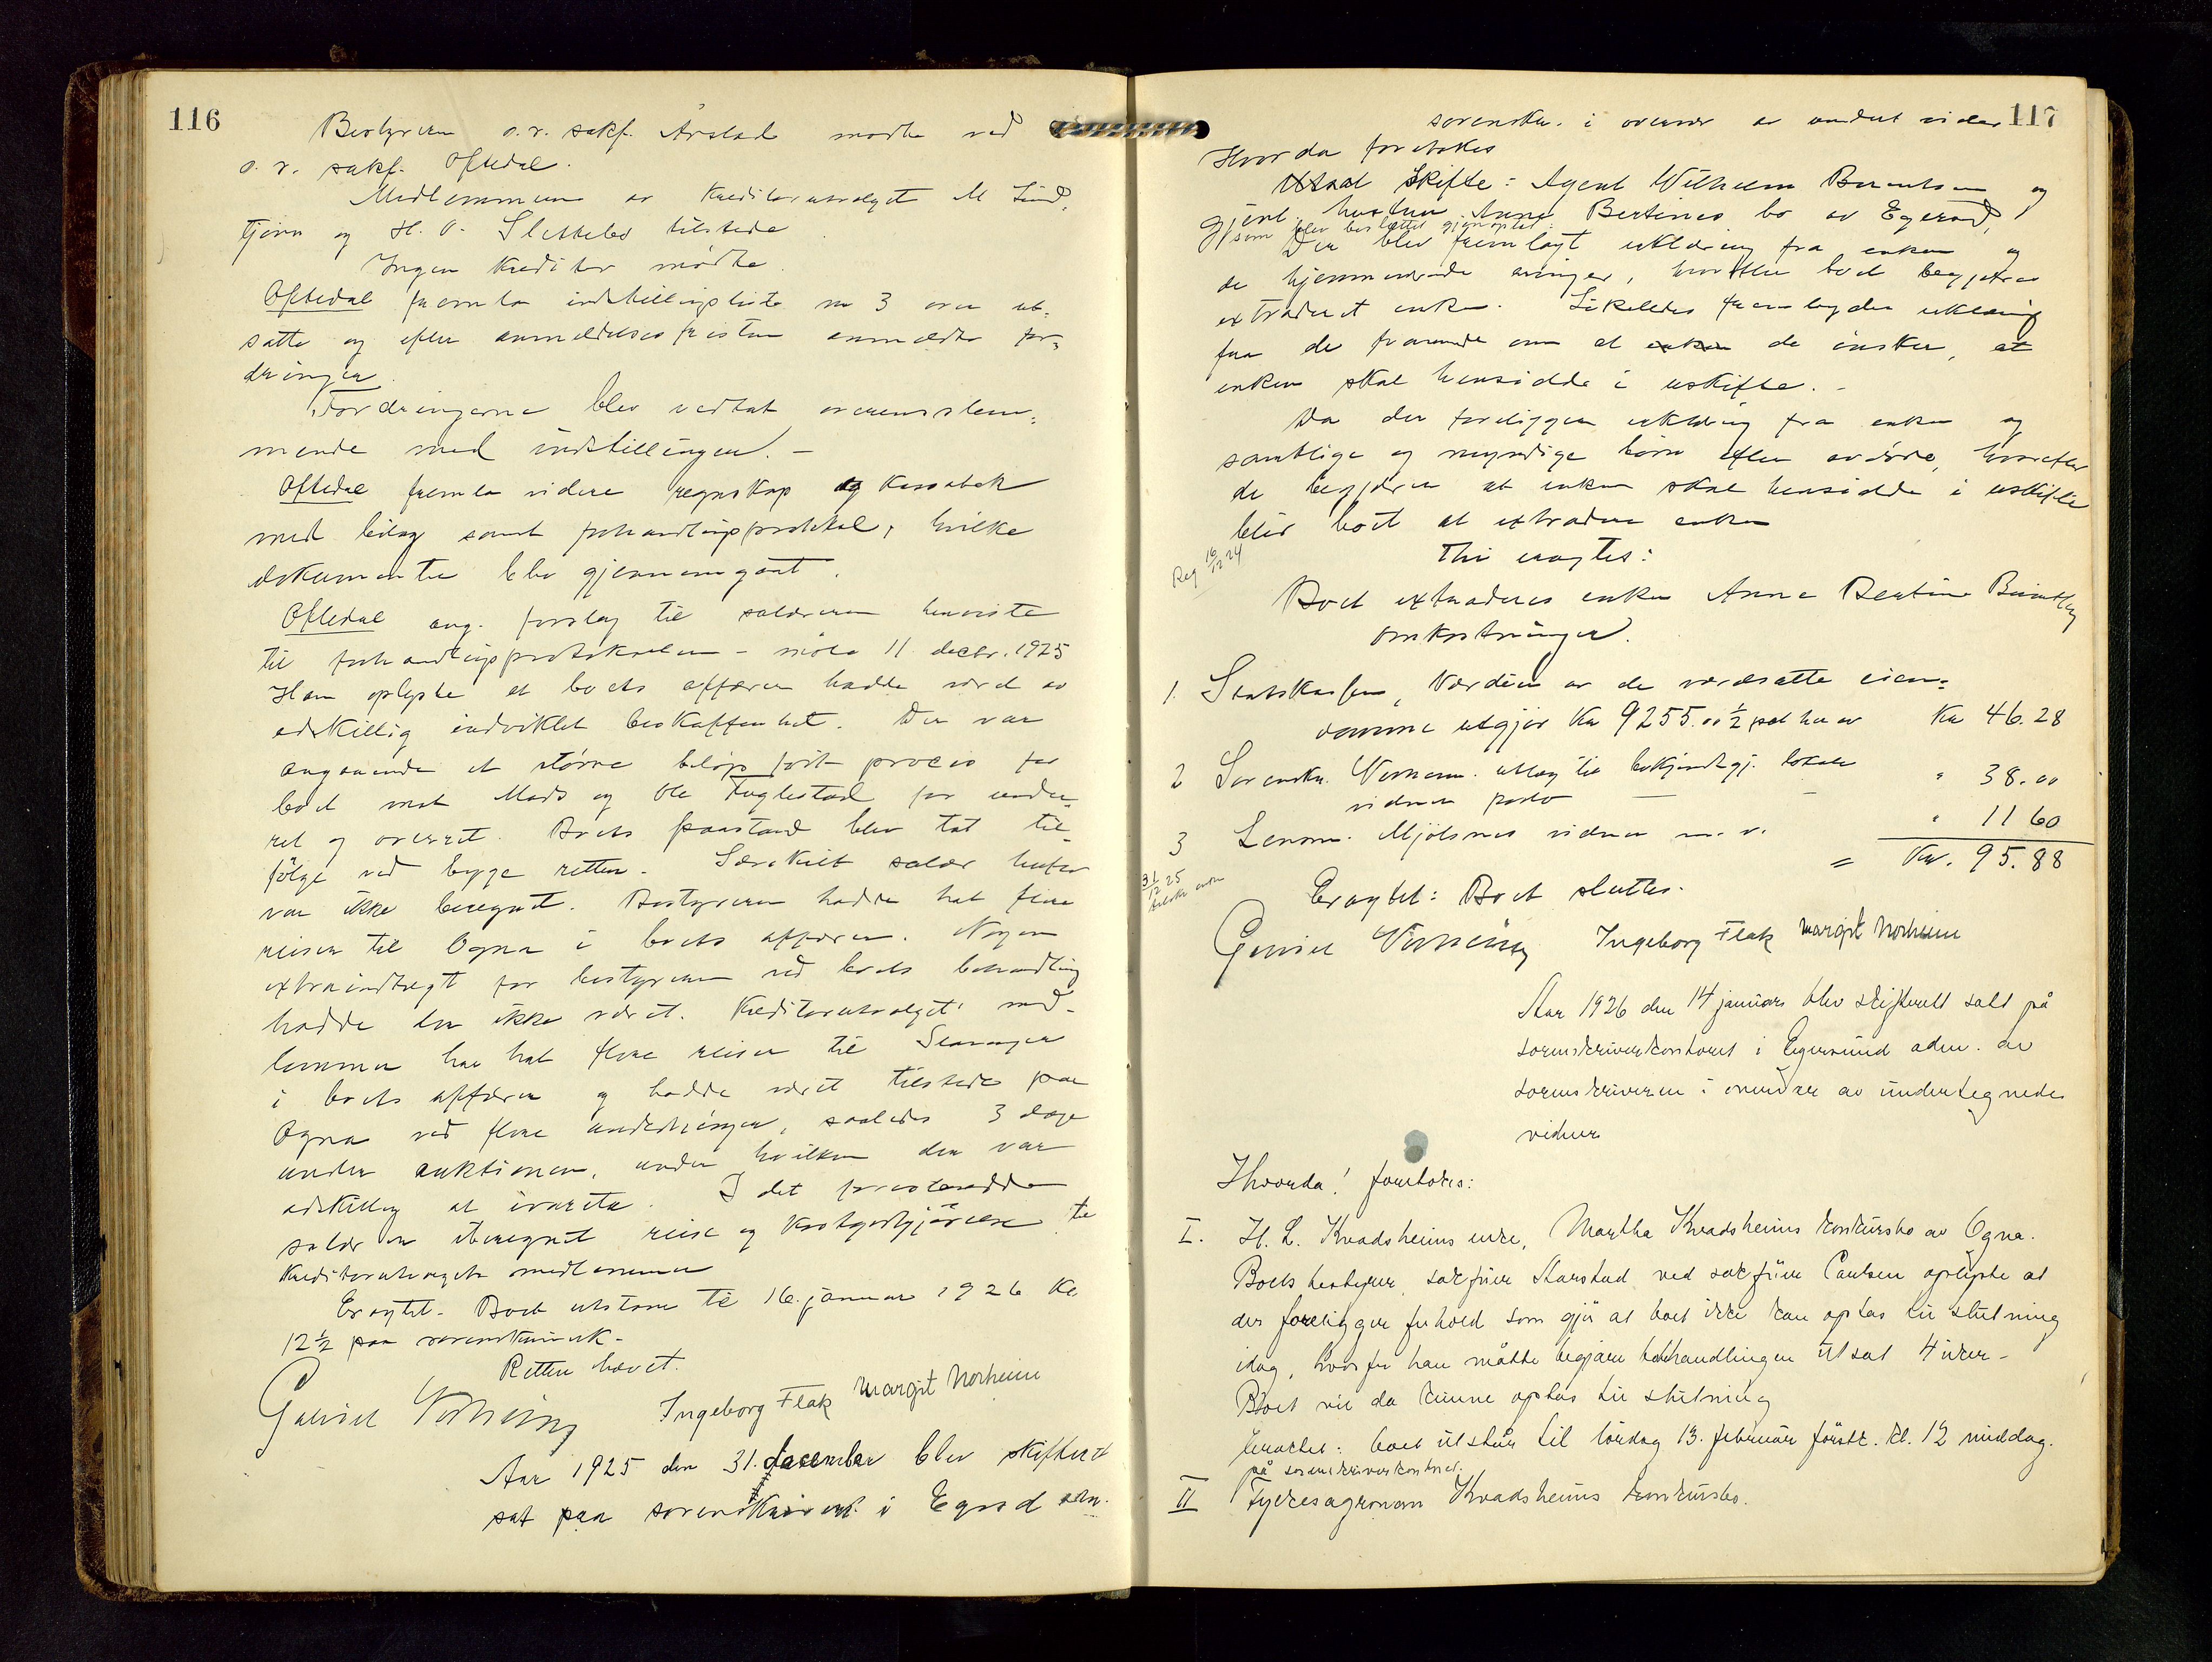 116
Bestyreren o.r. sakf. Årstad mødte ved
o. r. sakf. Oftedal.
Medlemmerne av kreditorutvalget M Lind,
Tjørn og H. O. Slettebø tilstede
Ingen kreditor mødte.
Oftedal fremla indstillingsliste nr 3 over ut-
satte og efter anmeldelsesfristen anmeldte for-
dringer.
Fordringerne blev vedtat overensstem-
mende med indstillingen. –
Oftedal fremla videre regnskap og kassabok
med bilag samt forhandlingsprotokol, hvilke
dokumenter blev gjennemgaat.
Oftedal ang. forslag til salærer henviste
til forhandlingsprotokollen – møte 11 decbr. 1925
Han oplyste at boets affærer hadde været av
adskillig indviklet beskaffenhet. Der var
angaaende et større beløp ført proces for
boet mot Mads og Ole Fuglestad for under-
ret og overret. Boets paastand blev tat til-
følge ved begge retter. Særskilt salær herfor
var ikke beregnet. Bestyreren hadde hat flere
reiser til Ogna i boets affærer. Nogen
extraindtægt for bestyreren ved boets behandling
hadde der ikke været. Kreditorutvalgets med-
lemmer har hat flere reiser til Stavanger
i boets affærer og hadde været tilstede paa
Ogna ved flere anledninger, saaledes 3 dage
under auktionen, under hvilken der var
adskillig at ivareta. I det
salær er iberegnet reise og kostgodtgjørelse til
kreditorutvalgets medlemmer
Eragtet. Boet utstaar til 16. januar 1926 kl.
12½ paa sorenskriverk.
Retten hævet.
Gabriel Ingeborg Flak Margit Norheim
Aar 1925 den 31. december blev skifteret
sat paa sorenskriverk. i Egrsd adm.
117
sorenskr. i overvær av undert vidner
Hvorda foretokes
Utsat Skifte: Agent Wilhelm Berentsen og
gjenl. hustru Anna Bertines bo av Egersund,
som blev besluttet gjenoptat.
Der blev fremlagt erklæring fra enken og
de hjemmeværende arvinger, hvorefter boet begjæres
extraderet enken. Likeledes fremlagdes erklæring
fra de fraværende om at enken de ønsker, at
enken skal hensidde i uskifte. –
Da der foreligger erklæring fra enken og
samtlige og myndige børn efter avdøde, hvorefter
de begjærer at enken skal hensidde i uskifte
blir boet at extradere enken
Reg 16/12 24
Thi eragtes:
Boet extraderes enken Anna Bertine Berentsen
Omkostninger.
1. Statskassen, Værdien av de værdsatte eien-
domme utgjør Kr 9255.00 ½ pct herav Kr 46.28
2 Sorenskr. utlæg til bekjendtgj. lokale
vidner porto — — " 38.00
3 Lensm. Mjølsnes vidner m. v. " 11 60
= Kr. 95.88
31/12 25
Eragtet: Boet sluttes.
Gabriel Ingeborg Flak Margit Norheim
Aar 1926 den 14 januar blev skifterett satt på
sorenskriverkontoret i Egersund adm. av
sorenskriveren i overvær av undertegnede
vidner
Hvorda! foretokes:
I. H. L. Kvadsheims enke, Martha Kvadsheims konkursbo av Ogna.
Boets bestyrer, sakfører Aarstad ved sakfører Paulsen oplyste at
der foreligger forhold som gjør at boet ikke kan optas til slutning
idag, hvorfor han måtte begjære behandlingen utsat 4 uker –
Boet vil da kunne optas til slutning
Eragtet: boet utstår til lørdag 13. februar førstk. kl. 12 middag.
på sorenskriverkontoret.
II Fylkesagronom Kvadsheims konkursbo.